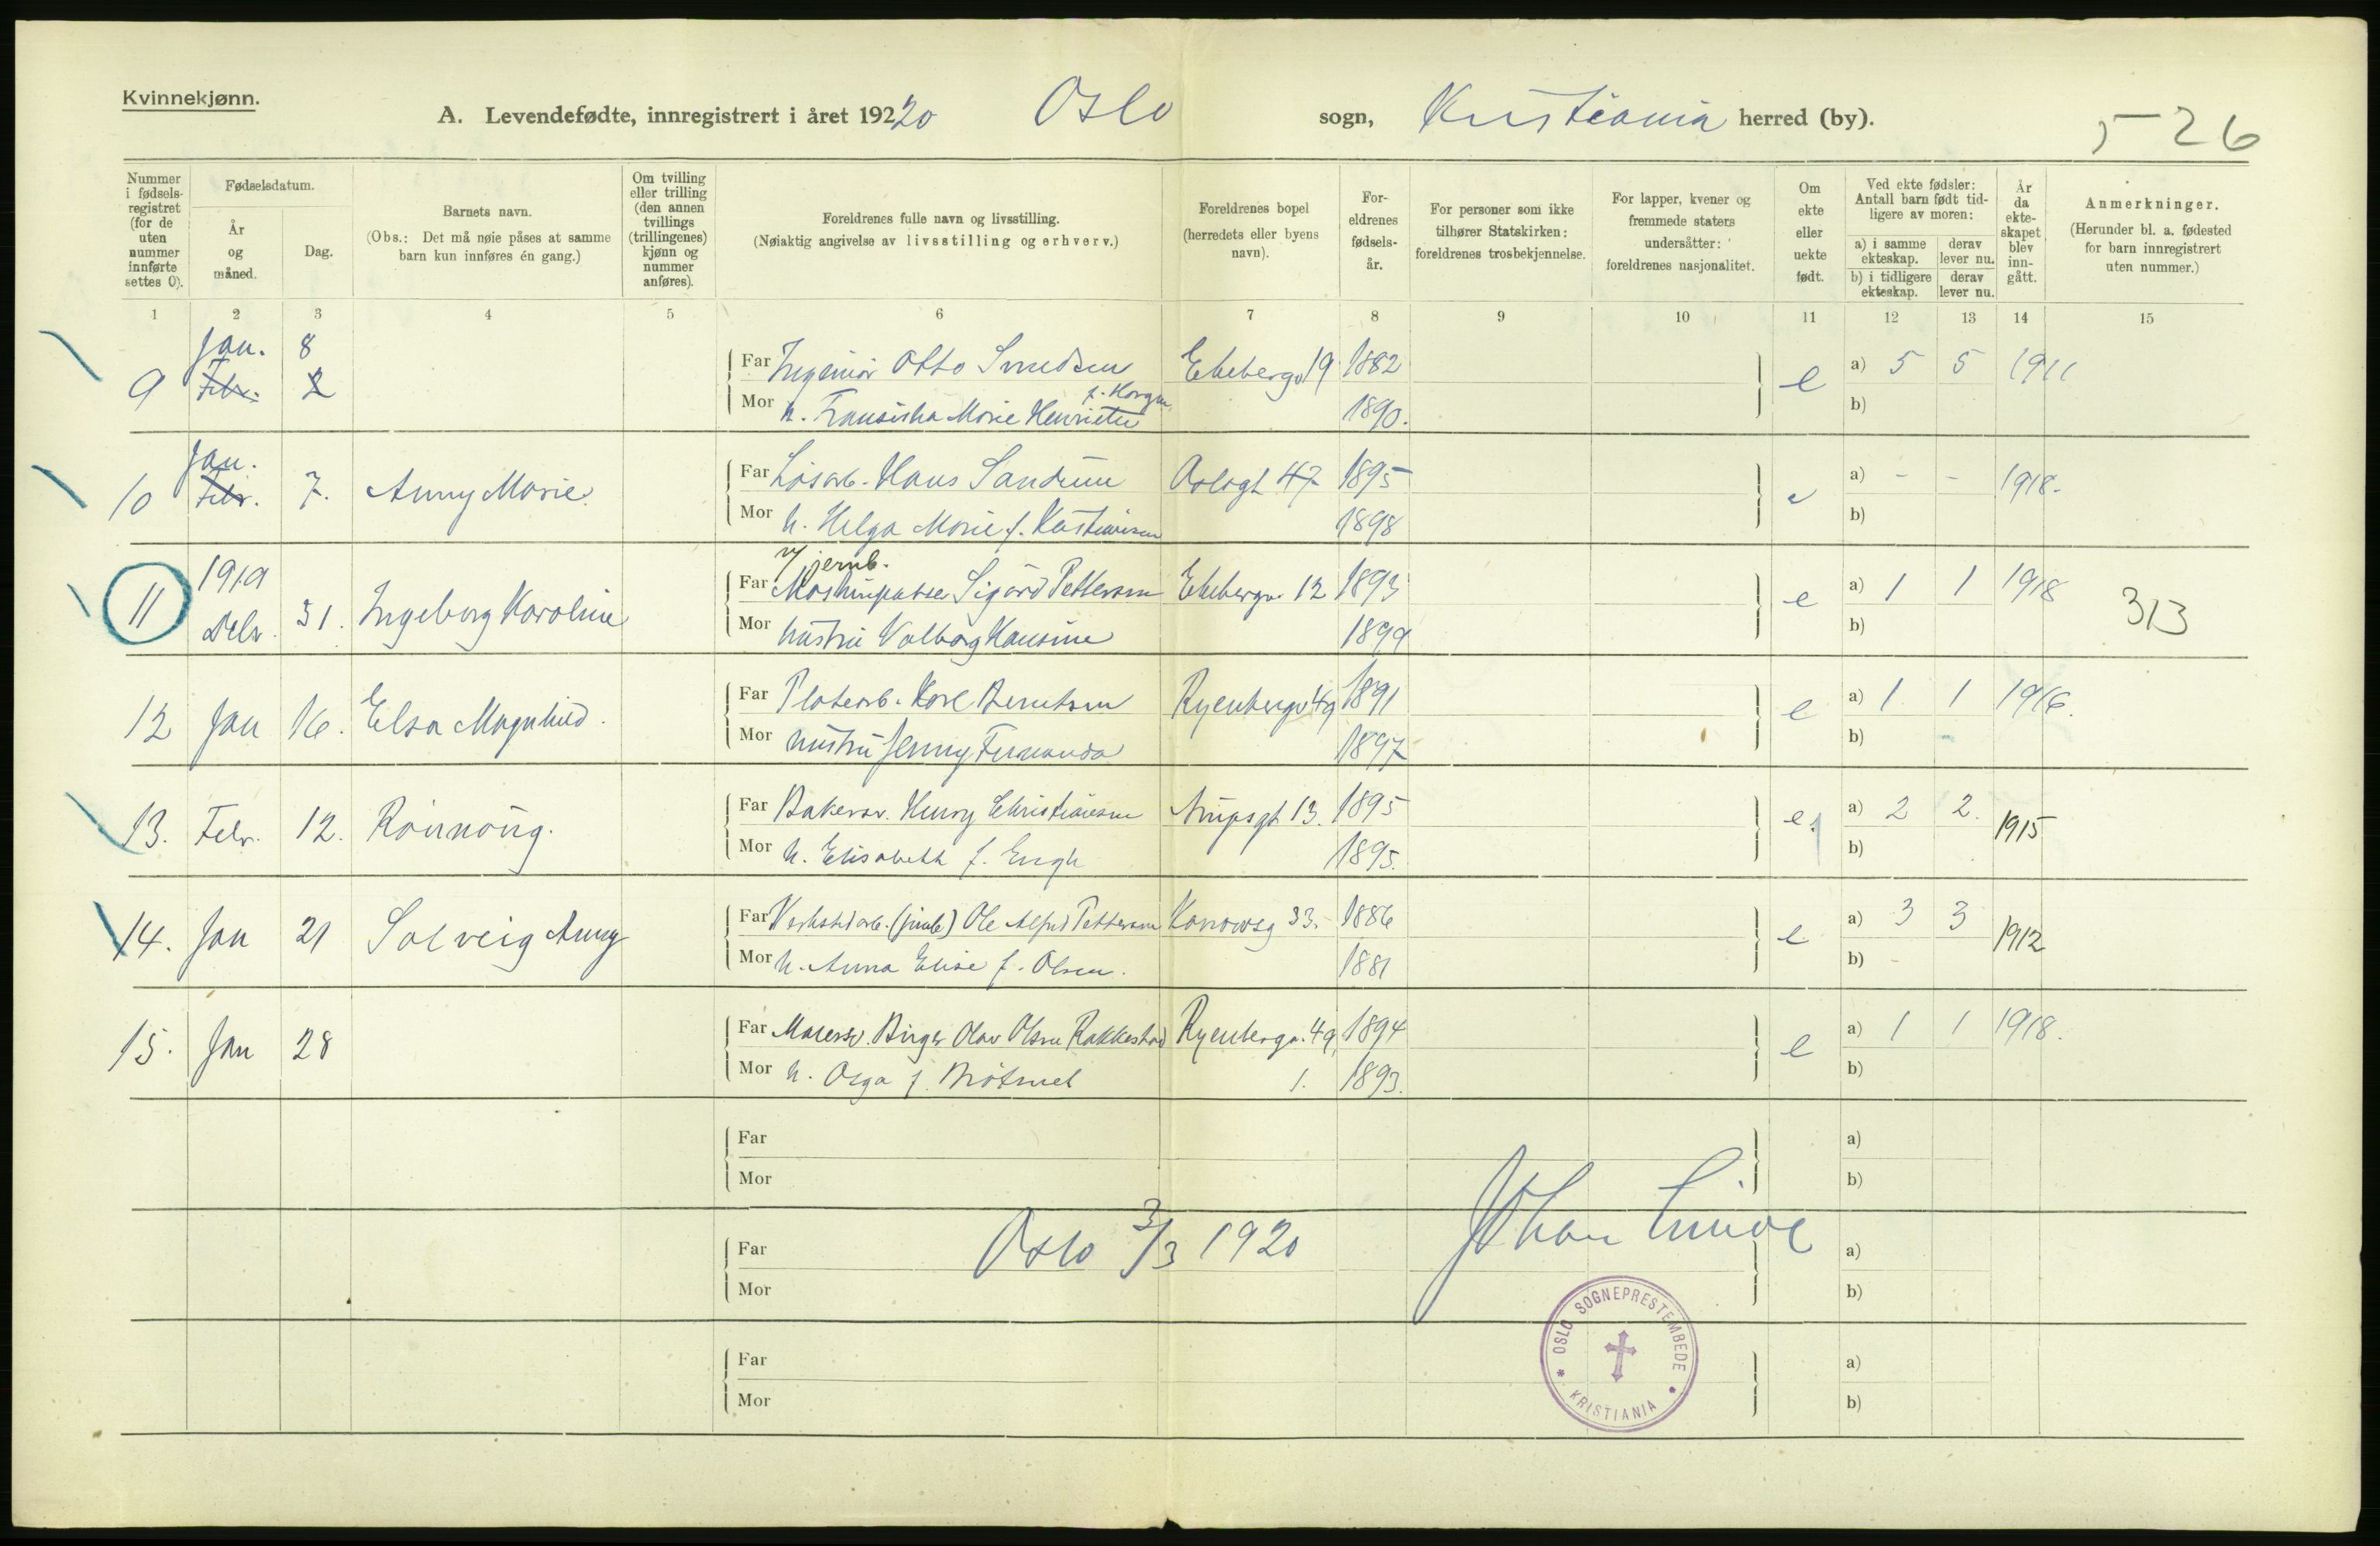 Kvinnekjønn.
A. Levendefødte, innregistrert i året 192 20 Oslo sogn, Kristiania herred (by).
526
Nummer i fødselsregistret (for de uten nummer innførte settes 0).
Fødselsdatum.
År og måned.
Dag.
Barnets navn.
(Obs.: Det må nøie påses at samme barn kun innføres én gang.)
Om tvilling eller trilling (den annen tvillings (trillingenes) kjønn og nummer anføres).
Foreldrenes fulle navn og livsstilling.
(Nøiaktig angivelse av livsstilling og erhverv.)
Foreldrenes bopel (herredets eller byens navn).
Foreldrenes fødselsår.
For personer som ikke tilhører Statskirken: foreldrenes trosbekjennelse.
For lapper, kvener og fremmede staters undersåtter: foreldrenes nasjonalitet.
Om ekte eller uekte født.
Ved ekte fødsler: Antall barn født tidligere av moren:
a) i samme ekteskap. derav lever nu.
b) i tidligere ekteskap. derav lever nu.
År da ekteskapet blev inngått.
Anmerkninger.
(Herunder bl. a. fødested for barn innregistrert uten nummer.)
1 2 3 4 5 6 7 8 9 10 11 12 13 14 15
Jan. 8
9 Febr. 2 Far Ingeniør Otto Smedsen Ekebergv 19 1882 e a) 5 5 1911
Mor h. Fransiska Marie Henriette 1890. b)
Jan.
10 Febr. 7. Anny Marie Far Løsarb. Hans Sandum Oslogt 47 1895 e a) - - 1918.
Mor h. Helga Marie f. Kristiansen 1898 b)
v/ jernb.
1919
11 Desbr. 31. Ingeborg Karoline Far Maskinpusser Sigurd Pettersen Ekebergv. 12 1893 e a) 1 1 1918 313
Mor hustru Valborg Hansine 1899 b)
12 Jan 16. Elsa Magnhild. Far Platearb. Karl Berntsen Ryenbergv 49 1891 e a) 1 1 1916.
Mor hustru Jenny Fernanda 1897 b)
13. Febr. 12. Rønnaug. Far Bakersv. Henry Christiansen Arupsgt 13. 1895 e. a) 2 2. 1915
Mor h. Elisabeth f. Engh 1895. b)
14. Jan 21 Solveig Anny Far Verkstedarb. (jernb) Ole Alfred Pettersen Konowsg 33. 1886 e a) 3 3 1912
Mor h. Anna Elise f. Olsen. 1881 b) -
15. Jan 28 Far Malersv. Birger Olav Olsen Rakkestad Ryenbergv. 49. 1894 e a) 1 1 1918.
Mor h. Olga f. 1. 1893. b)
Far a)
Mor b)
Far Oslo 3/3 1920 Johan a)
Mor b)
Far a)
Mor b)
OSLO SOGNEPRESTEMBEDE
KRISTIANIA